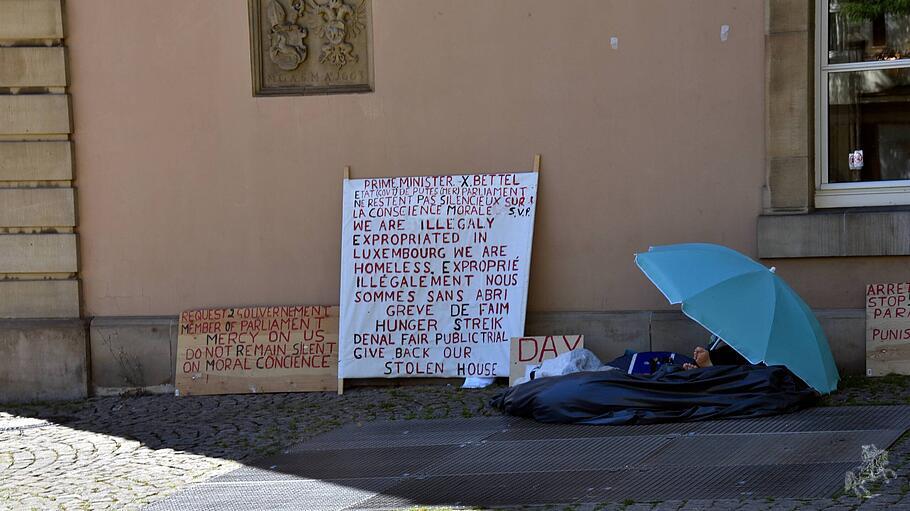 NGASMAJOOR
REQUEST 2 GOUVERNEMENT
MEMBER OF PARLIAMENT
MERCY ON US
DO NOT REMAIN SILENT
ON MORAL CONCIENCE
!
PRIME.MINISTER.X.BETTEL
ETAT(GOUT) DE PUTES(MER) PARLIAMENT
NE RESTENT PAS SILENCIEUX SUR
LA CONSCIENCE MORALE S.V.P.
WE ARE ILLEGALY
EXPROPRIATED IN
LUXEMBOURG WE ARE
HOMELESS. EXPROPRIÉ
ILLÉGALEMENT NOUS
SOMMES SANS ABRI
GREVE DE FAIM
HUNGER STREIK
DENAL FAIR PUBLIC TRIAL
GIVE BACK OUR
STOLEN HOUSE
DAY
ARRET
STOP
PAR
PUNIS